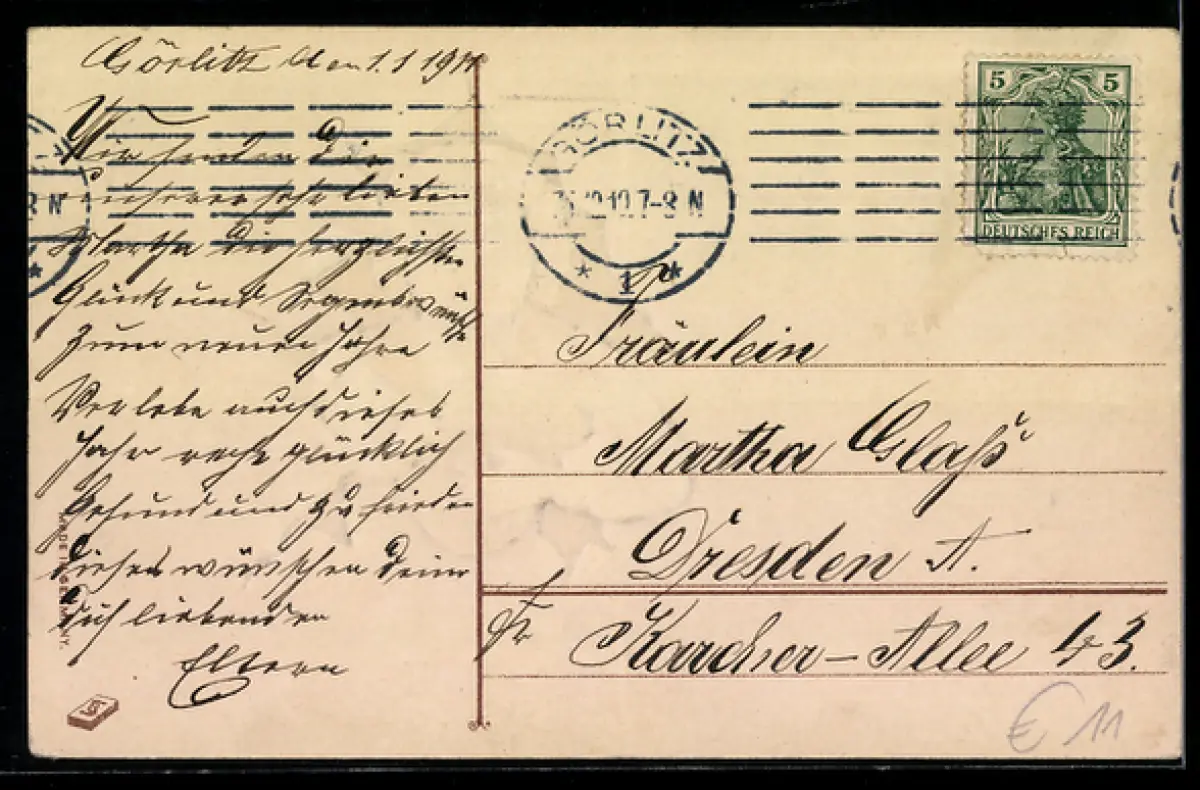 Görlitz den 1.1 1911
Wir senden Dir
unserer sehr lieben
Martha die herzlichsten
Glück und Segenswünsche
zum neuen Jahre
Verlebe auch dieses
Jahr recht glücklich
Gesund und zufrieden
dieses wünschen Deine
dich liebenden
Eltern
MADE IN GERMANY.
GÖRLITZ
12.10.7-8 N
* 1 *
8 N
*
5 5
DEUTSCHES REICH
Fräulein
Martha Glaß
Dresden A.
Karcher-Allee 43.
€ 11